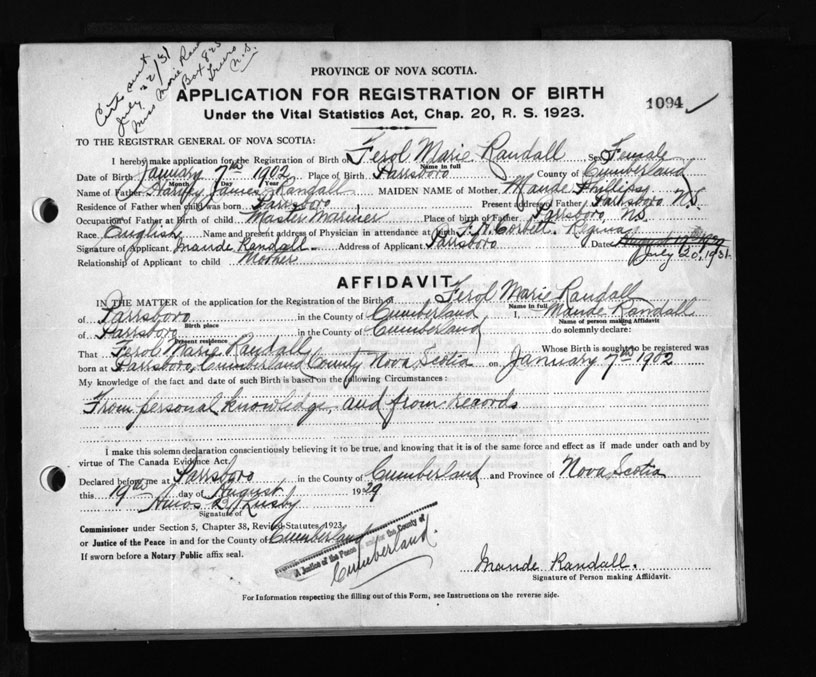 Cert. sent
July 22/31
Miss Marie Ran
Box 825
Truro
N.S.
PROVINCE OF NOVA SCOTIA.
APPLICATION FOR REGISTRATION OF BIRTH
Under the Vital Statistics Act, Chap. 20, R. S. 1923.
1094
TO THE REGISTRAR GENERAL OF NOVA SCOTIA:
I hereby make application for the Registration of Birth of Ferol Marie Randall Sex Female
Name in full
Date of Birth January 7th 1902 Place of Birth Parrsboro County of Cumberland
Month Day Year
Name of Father Harvey James Randall MAIDEN NAME of Mother Maude Phillips
Residence of Father when child was born Parrsboro Present address of Father Parrsboro N.S.
Occupation of Father at Birth of child Master Mariner Place of birth of Father Parrsboro, N.S.
Race English Name and present address of Physician in attendance at birth Corbett. Regina
Signature of Applicant Maude Randall. Address of Applicant Parrsboro Date August 19th 1929
July 20, 1931.
Relationship of Applicant to child Mother
AFFIDAVIT
IN THE MATTER of the application for the Registration of the Birth of Ferol Marie Randall
Name in full
of Parrsboro in the County of Cumberland I, Maude Randall
Birth place Name of person making Affidavit
of Parrsboro in the County of Cumberland do solemnly declare:
Present residence
That Ferol Marie Randall Whose Birth is sought to be registered was
born at Parrsboro, Cumberland County Nova Scotia on January 7th 1902
My knowledge of the fact and date of such Birth is based on the following Circumstances:
From personal knowledge, and from records
I make this solemn declaration conscientiously believing it to be true, and knowing that it is of the same force and effect as if made under oath and by
virtue of The Canada Evidence Act.
Declared before me at Parrsboro in the County of Cumberland and Province of Nova Scotia
this 19th day of August 1929
Amos B. Lusby
Signature of
Commissioner under Section 5, Chapter 38, Revised Statutes, 1923,
or Justice of the Peace in and for the County of Cumberland
If sworn before a Notary Public affix seal.
A Justice of the Peace in and for the County of
Cumberland.
Maude Randall.
Signature of Person making Affidavit.
For Information respecting the filling out of this Form, see Instructions on the reverse side.